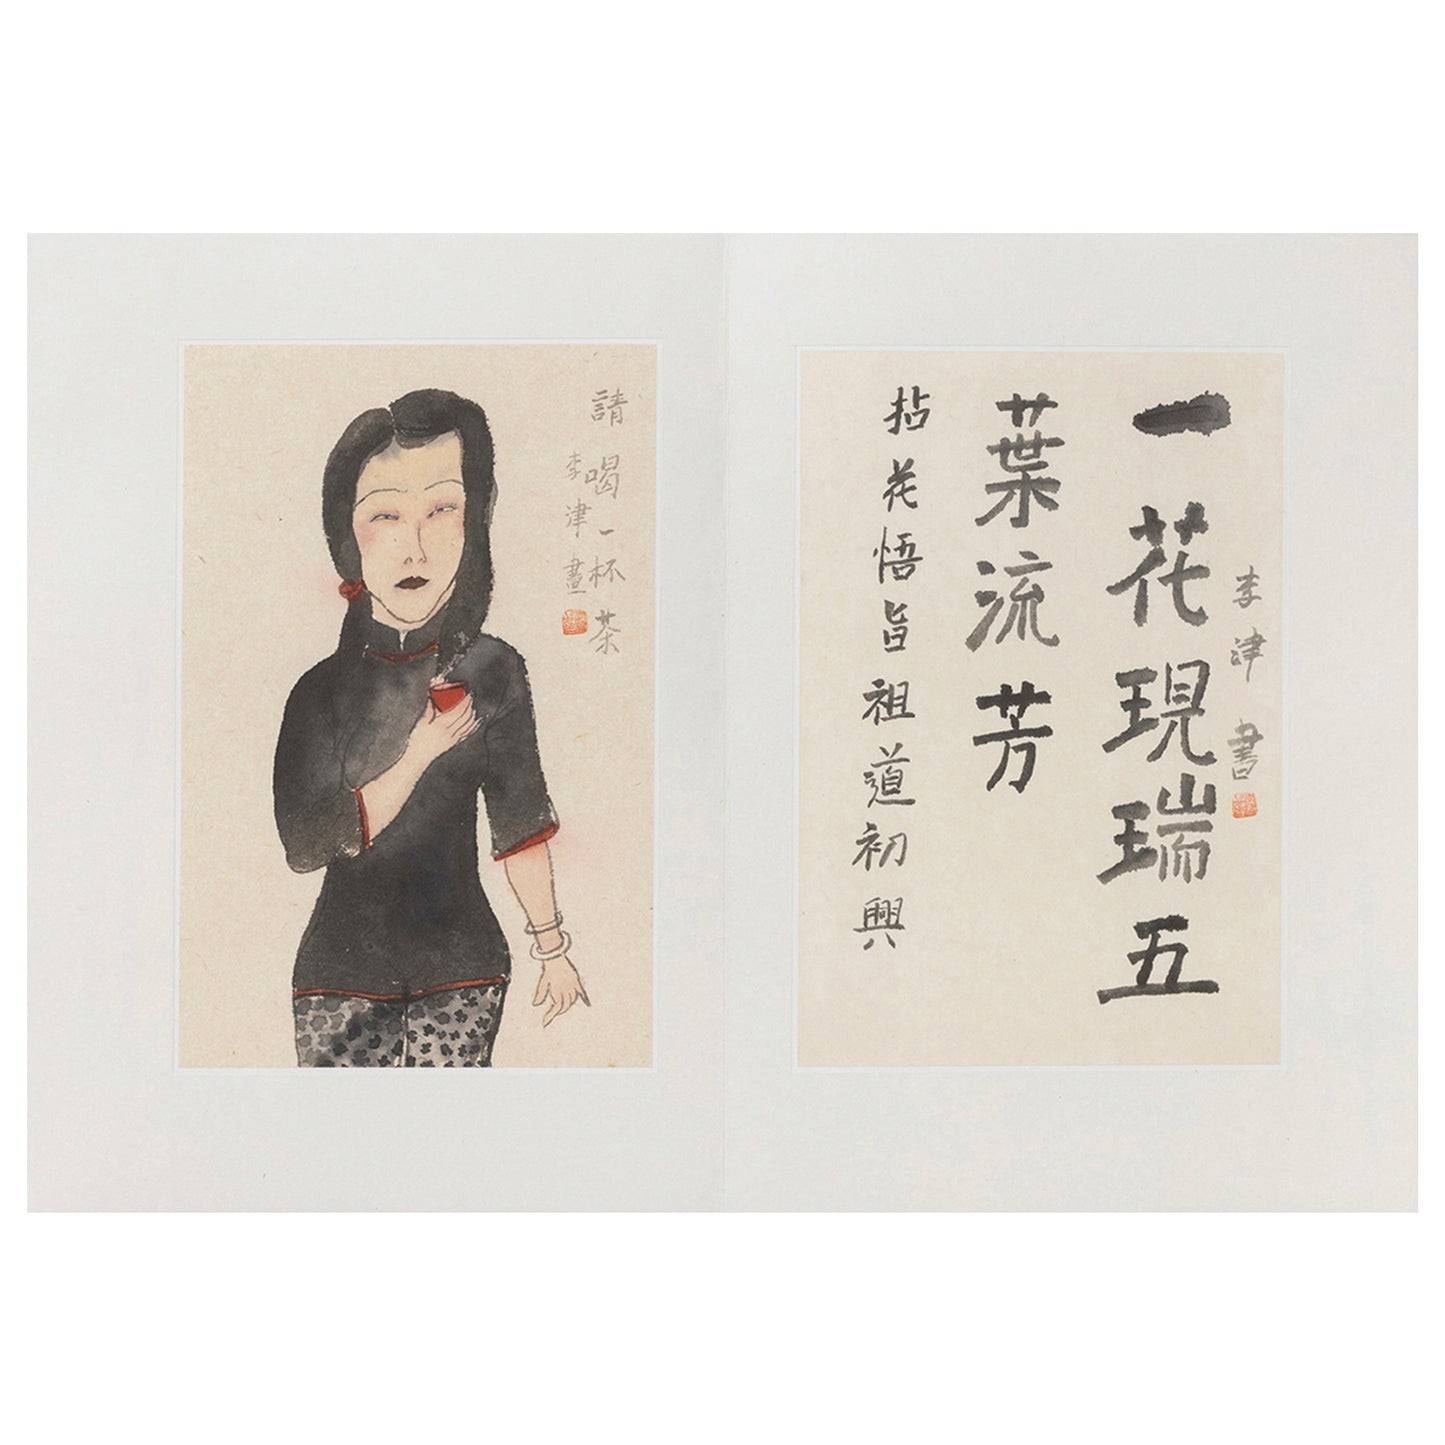 請喝一杯茶
李津畫
一花現瑞五
葉流芳
拈花悟旨祖道初興
李津書